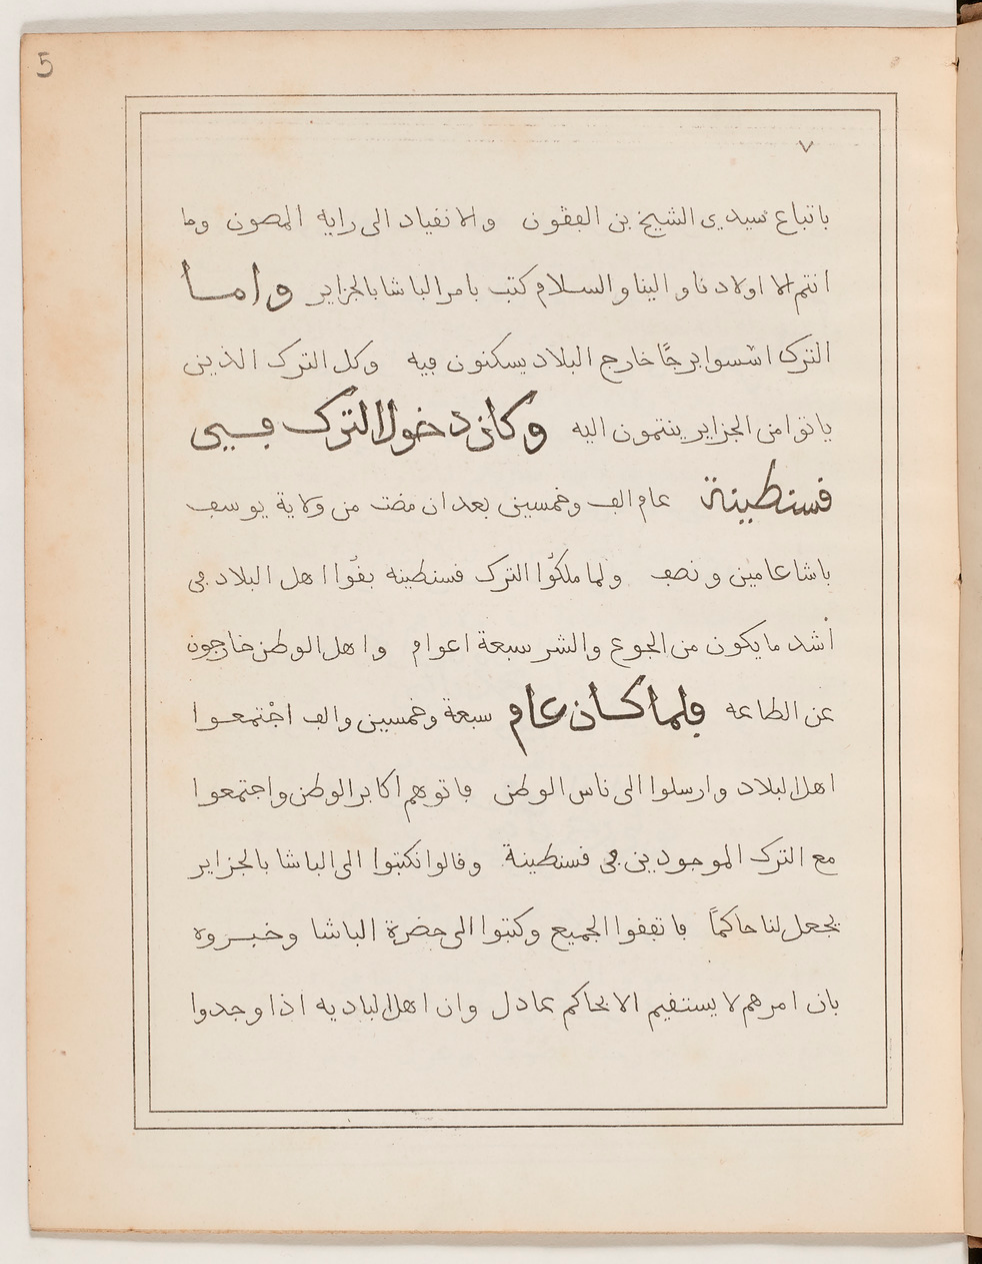 5
٧
باتباع سيدي الشيخ بن الفڨون والانقياد الى رايه المصون وما
انتم الا اولادنا والينا والسلام كتب بامر الباشا بالجزاير واما
الترك اسّسوا برجًا خارج البلاد يسكنون فيه وكل الترك الذين
ياتوا من الجزاير ينتمون اليه وكان دخول الترك فيي
قسنطينة عام الف وخمسين بعد ان مضت من ولاية يوسف
باشا عامين ونصف ولما ملكوا الترك قسنطينه بقوا اهل البلاد في
أشد ما يكون من الجوع والشر سبعة اعوام واهل الوطن خارجون
عن الطاعه فلما كان عام سبعة وخمسين والف اجْتمعوا
اهل البلاد وارسلوا الى ناس الوطن فاتوهم اكابر الوطن واجتمعوا
مع الترك الموجودين في قسنطينة وقالوا نكتبوا الى الباشا بالجزاير
يجعل لنا حاكمًا فاتفقوا الجميع وكتبوا الى حضرة الباشا وخبروه
بان امرهم لا يستقيم الا بحاكم عادل وان اهل الباديه اذا وجدوا